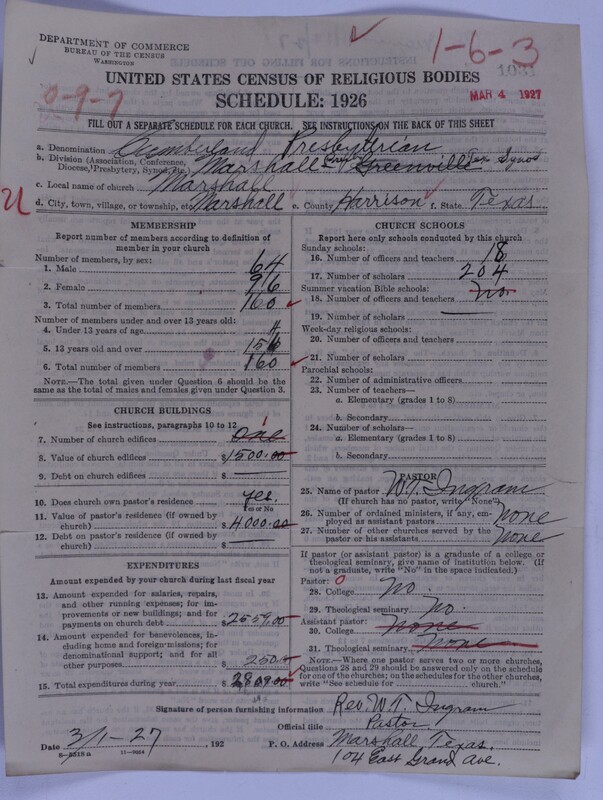 DEPARTMENT OF COMMERCE
BUREAU OF THE CENSUS
WASHINGTON
1-6-3
1031
MAR 4 1927
UNITED STATES CENSUS OF RELIGIOUS BODIES
0-9-7
SCHEDULE: 1926
FILL OUT A SEPARATE SCHEDULE FOR EACH CHURCH. SEE INSTRUCTIONS ON THE BACK OF THIS SHEET
a. Denomination Cumberland Presbyterian
b. Division (Association, Conference, Diocese, Presbytery, Synod, etc.) Marshall Greenville Tex Synod
c. Local name of church Marshall
d. City, town, village, or township, etc. Marshall e. County Harrison f. State Texas
MEMBERSHIP
Report number of members according to definition of
member in your church
Number of members, by sex:
1. Male 64
2. Female 96
3. Total number of members 160
Number of members under and over 13 years old:
4. Under 13 years of age 4
5. 13 years old and over 156
6. Total number of members 160
NOTE.—The total given under Question 6 should be
the same as the total of males and females given under Question 3.
CHURCH BUILDINGS
See instructions, paragraphs 10 to 12
7. Number of church edifices one 1
8. Value of church edifices $1500.00
9. Debt on church edifices $
10. Does church own pastor's residence yes.
Yes or No
11. Value of pastor's residence (if owned by
church) $4000.00
12. Debt on pastor's residence (if owned by
church) $
EXPENDITURES
Amount expended by your church during last fiscal year
13. Amount expended for salaries, repairs,
and other running expenses; for im-
provements or new buildings; and for
payments on church debt $2559.00
14. Amount expended for benevolences, in-
cluding home and foreign missions; for
denominational support; and for all
other purposes $250.00
15. Total expenditures during year $2809.00
CHURCH SCHOOLS
Report here only schools conducted by this church
Sunday schools:
16. Number of officers and teachers 18
17. Number of scholars 204
Summer vacation Bible schools:
18. Number of officers and teachers no.
19. Number of scholars
Week-day religious schools:
20. Number of officers and teachers
21. Number of scholars
Parochial schools:
22. Number of administrative officers
23. Number of teachers—
a. Elementary (grades 1 to 8)
b. Secondary
24. Number of scholars—
a. Elementary (grades 1 to 8)
b. Secondary
PASTOR
25. Name of pastor W.T. Ingram
(If church has no pastor, write "None")
26. Number of ordained ministers, if any, em-
ployed as assistant pastors None
27. Number of other churches served by the
pastor or his assistants None
If pastor (or assistant pastor) is a graduate of a college or
theological seminary, give name of institution below. (If
not a graduate, write "No" in the space indicated.)
Pastor: 0
28. College No.
29. Theological seminary No.
Assistant pastor:
30. College None
31. Theological seminary None
NOTE.—Where one pastor serves two or more churches,
Questions 28 and 29 should be answered only on the schedule
for one of the churches; on the schedules for the other churches,
write "See schedule for church."
Signature of person furnishing information Rev. W.T. Ingram
Official title Pastor.
Date 3/1-27, 192 P. O. Address Marshall Texas.
104 East Grand Ave.
11-9024